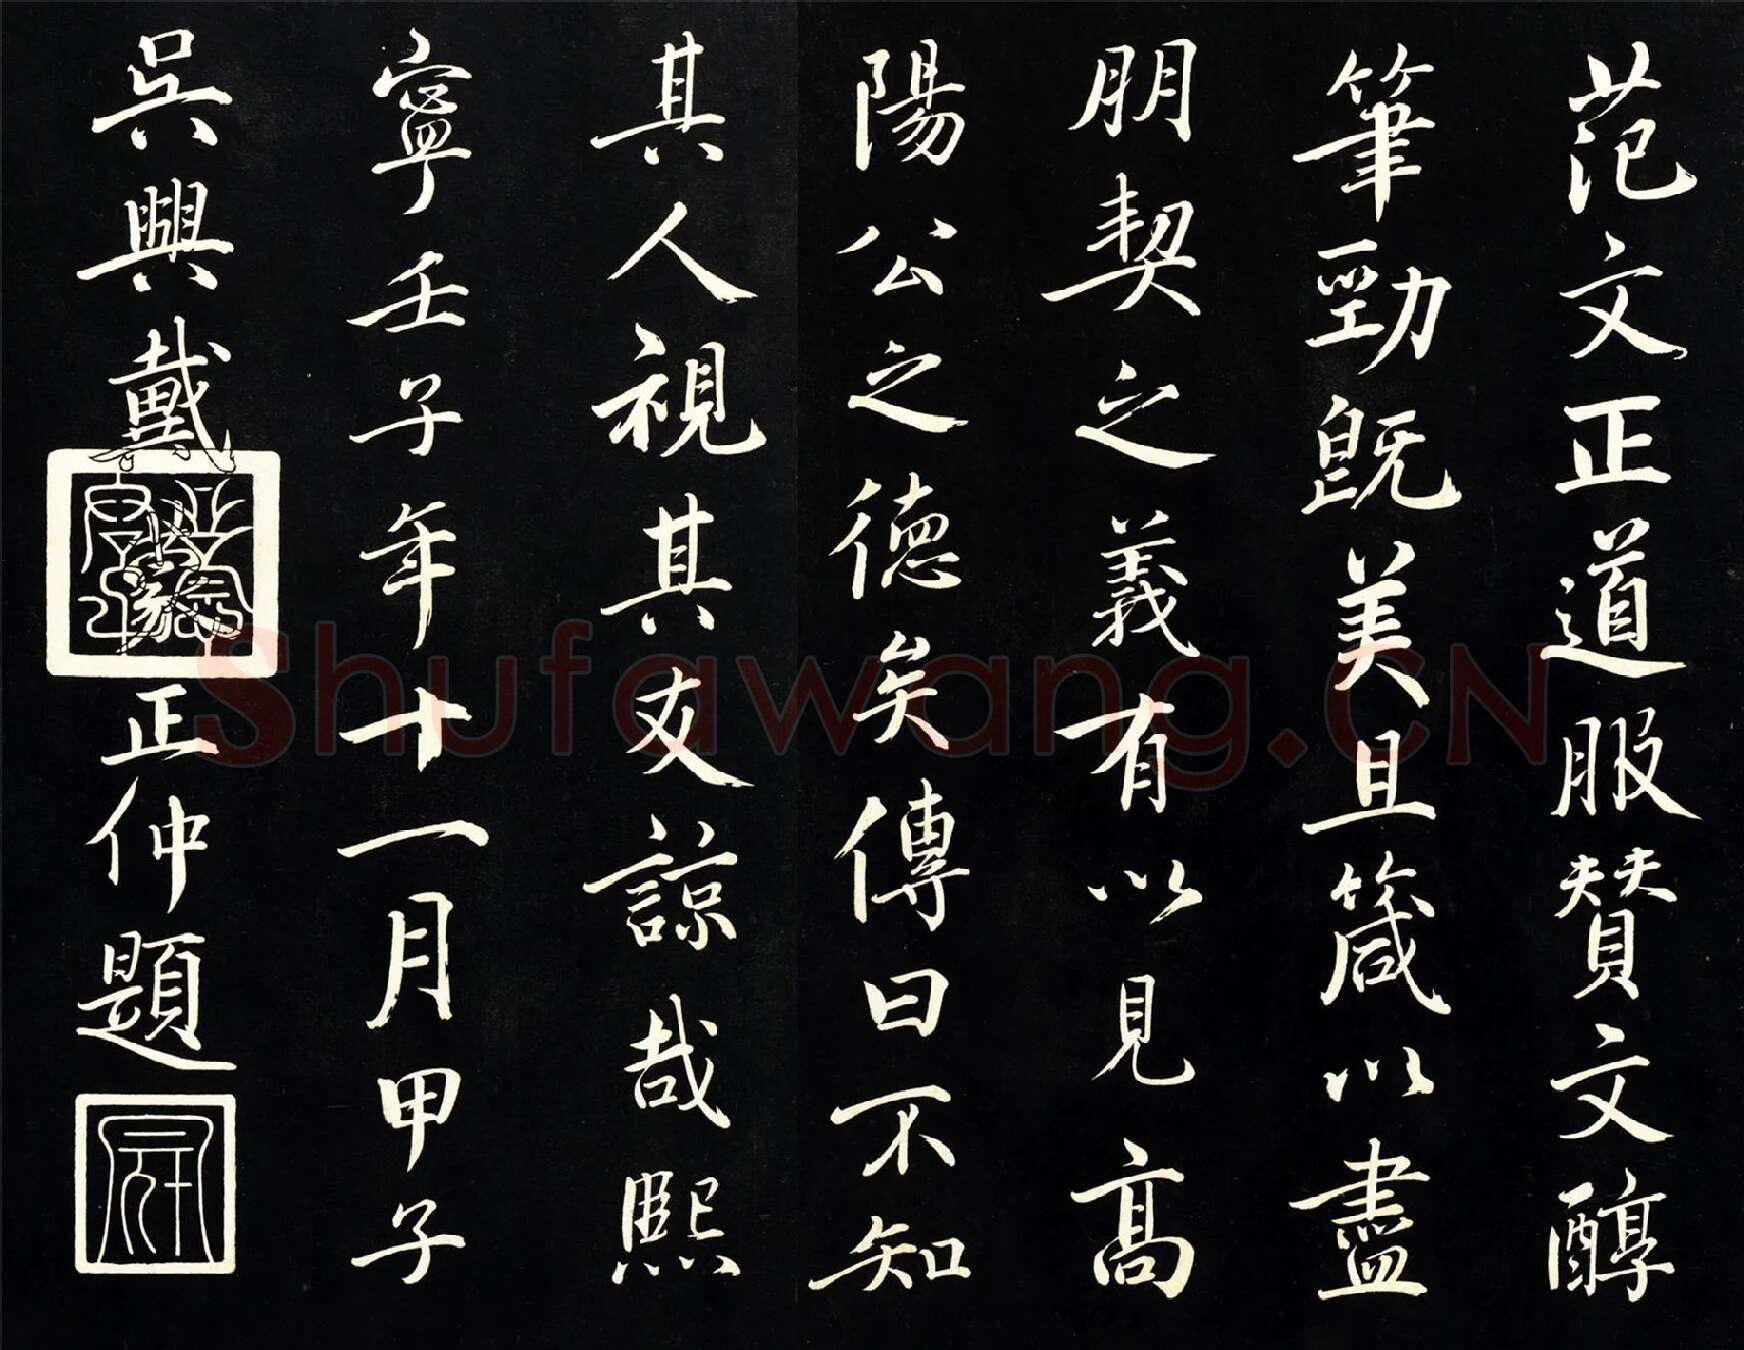 范文正道服賛文醇
筆勁既美且箴以盡
朋契之義有以見高
陽公之德矣傳曰不知
其人視其友諒哉熙
寧壬子年十一月甲子
吳興戴蒙正仲題
Shufawang.CN